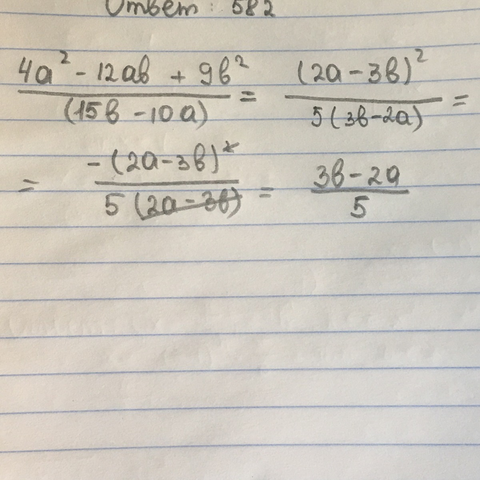 Ответ: 582
4a² - 12ab + 9b² / (15b - 10a) = (2a - 3b)² / 5(3b - 2a) =
= -(2a - 3b)² / 5(2a - 3b) = 3b - 2a / 5